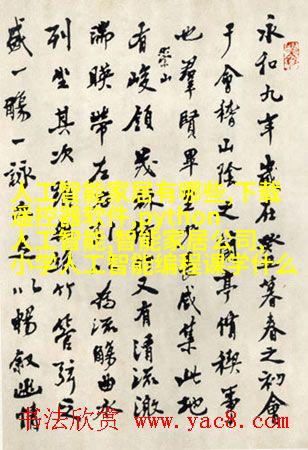 永和九年歲在癸暮春之初會
于會稽山陰之蘭亭脩稧事
也羣賢畢咸集此地
有崇山峻領茂林脩又有清流激
湍暎帶左為流觴曲水
列坐其次竹管弦之
盛一觴一詠以暢敘幽情
人工智能家居有哪些,下载
遥控器软件,python
人工智能,智能家居公司,
小学人工智能编程课学什么
书法欣赏 www.yac8.com